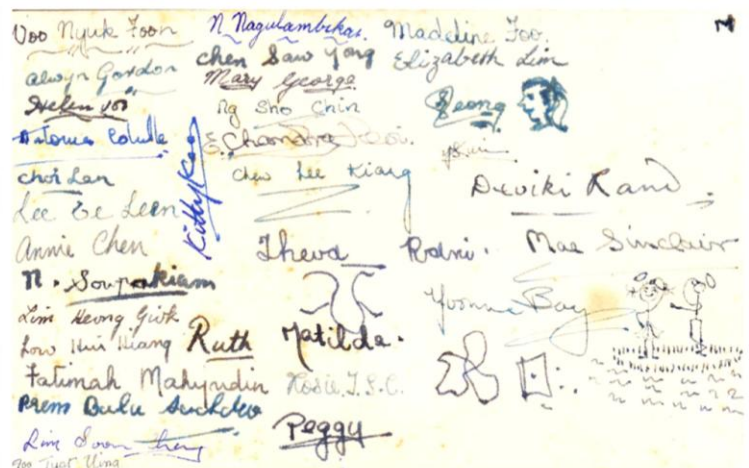 Voo Nyuk Foon
Alwyn Gordon
Helen
Antonia
Choi Lan
Lee Ee Leen
Annie Chen
N. Soupakiam
Lim Keong Giok
Low Hui Hiang
Fatimah Mahyudin
Prem Dulu Suchdev
Lim Soon
Kitty Koo
N Nagulambikai.
Chen Saw Yong
Mary George.
Ng Sho Chin
S. Chandra
Chew Lee Kiang
Theva
Rodni.
Ruth
Matilda.
Rosie. T.S.C.
Peggy
Madeline Foo.
Elizabeth Lim
Seong
Deviki Rand.
Mae Sinclair
Yvonne Bay
M